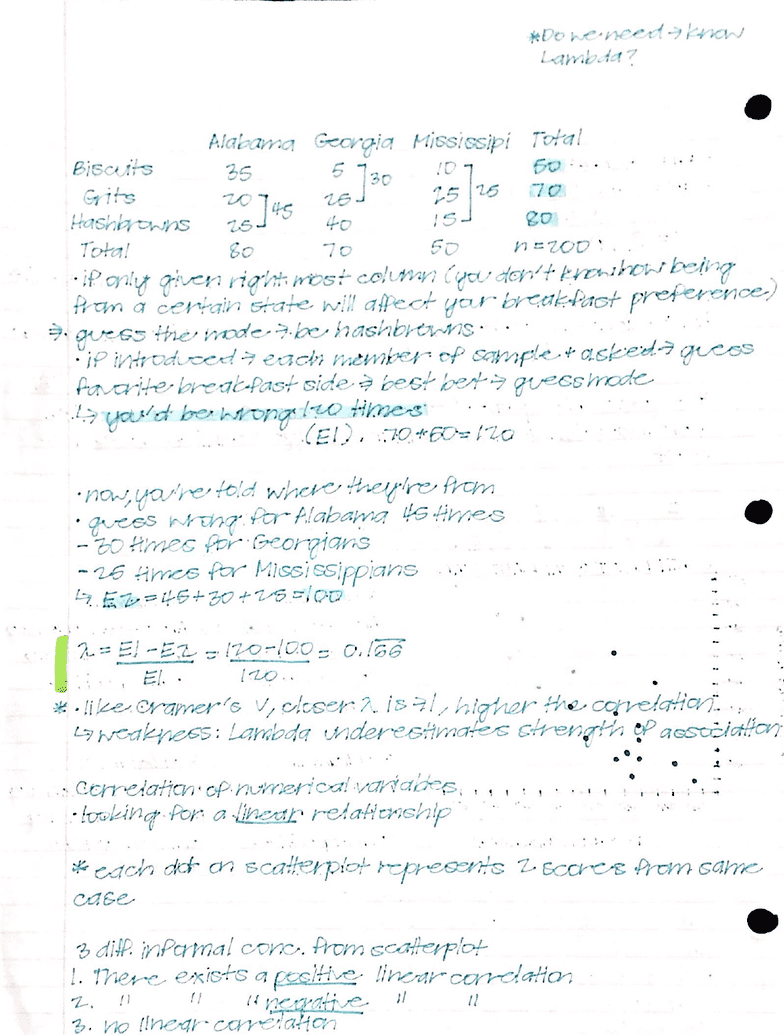 *Do we need → know
Lambda?
Alabama Georgia Mississipi Total
Biscuits 35 5 ]30 10 ]25 50
Grits 20 ]45 25 25 70
Hashbrowns 25 40 15 80
Total 80 70 50 n=200
• if only given right most column (you don't know how being
from a certain state will affect your breakfast preference)
→ guess the mode → be hashbrowns.
• if introduced → each member of sample + asked → guess
favorite breakfast side → best bet → guess mode
↳ you'd be wrong 120 times
(E1). 70+50=120
• now, you're told where they're from
• guess wrong for Alabama 45 times
- 30 times for Georgians
- 25 times for Mississippians
↳ E2 = 45+30+25=100
λ = E1-E2 / E1 = 120-100 / 120 = 0.166
* • like Cramer's V, closer λ is → 1, higher the correlation
↳ weakness: Lambda underestimates strength of association
Correlation of numerical variables
• looking for a linear relationship
* each dot on scatterplot represents 2 scores from same
case
3 diff. informal conc. from scatterplot
1. There exists a positive linear correlation
2. " " " negative " "
3. no linear correlation